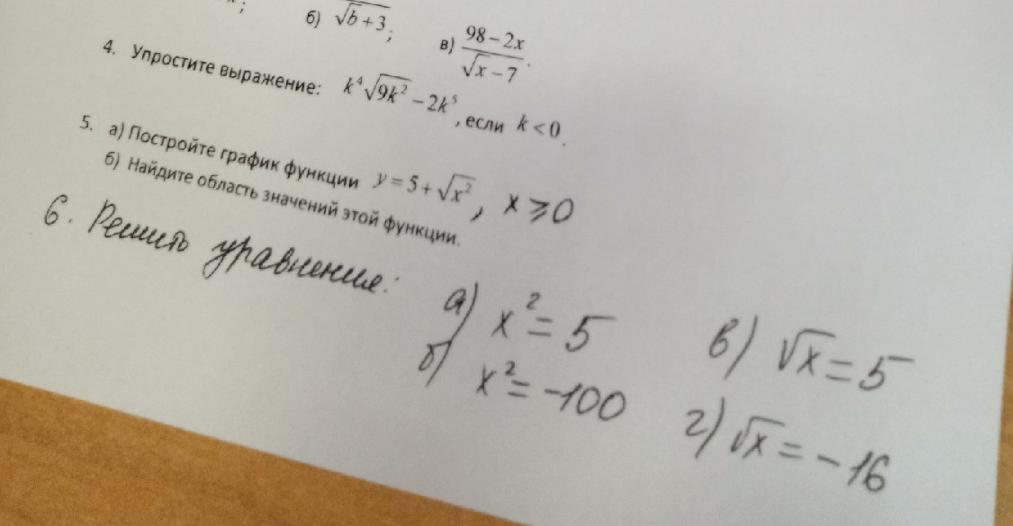 б) √(b+3);
в) (98−2x)/(√x−7).
4. Упростите выражение: k⁴√(9k²) −2k⁵, если k<0.
5. а) Постройте график функции y=5+√(x²), x ⩾ 0
б) Найдите область значений этой функции.
6. Решить уравнения:
а) x² = 5
в) √x = 5
б) x² = -100
г) √x = -16